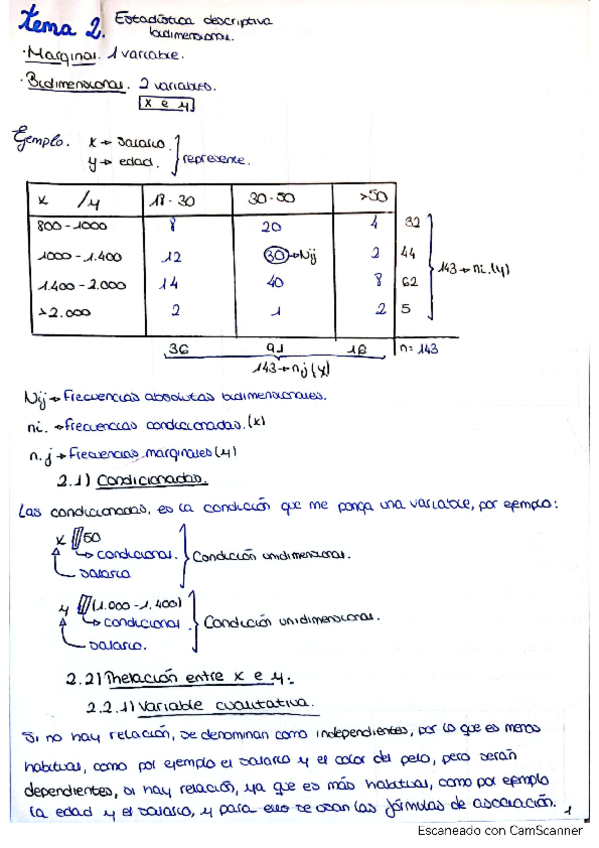 tema 2. Estadística descriptiva
bidimensional.
· Marginal. 1 variable.
· Bidimensional. 2 variables.
x e y
Ejemplo. x → salario.
y → edad. } represente.
x /y 18-30 30-50 >50
800-1000 8 20 4 32
1000-1.400 12 30 → Nij 2 44
1.400-2.000 14 40 8 62
>2.000 2 1 2 5
143 → ni.(y)
36 91 16 n=143
143 → nj(y)
Nij → Frecuencias absolutas bidimensionales.
ni. → frecuencias condicionadas.(x)
n.j → Frecuencias marginales(y)
2.1) Condicionadas.
Las condicionadas, es la condición que me ponga una variable, por ejemplo:
x 50
→ condicional.
salario
} Condición unidimensional.
y (1.000-1.400)
→ condicional
salario.
} Condición unidimensional.
2.2) Relación entre x e y.
2.2.1) Variable cualitativa.
Si no hay relación, se denominan como independientes, por lo que es menos
habitual, como por ejemplo el salario y el color del pelo, pero serán
dependientes, si hay relación, ya que es más habitual, como por ejemplo
la edad y el salario, y para ello se usan las fórmulas de asociación. 1
Escaneado con CamScanner